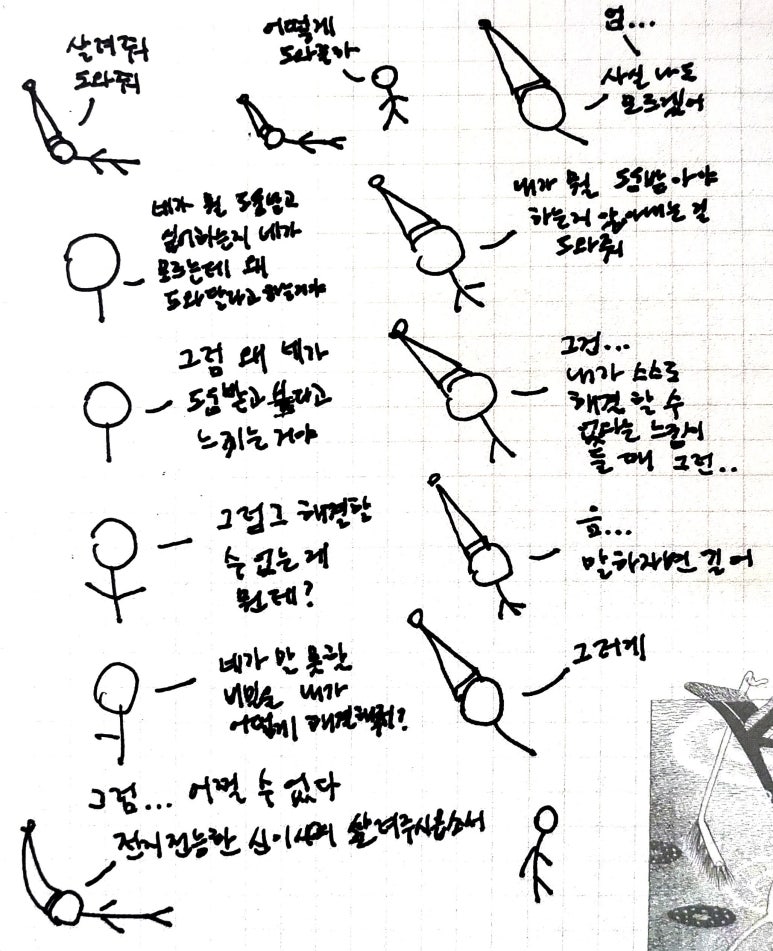 살려줘
도와줘
어떻게
도와줄까
엄...
사실 나도
모르겠어
네가 뭘 도움받고
싶어하는지 네가
모르는데 왜
도와달라고 하는거야
내가 뭘 도움받아야
하는지 알아내는 걸
도와줘
그럼 왜 네가
도움받고 싶다고
느끼는 거야
그건...
내가 스스로
해결 할 수
없다는 느낌이
들 때 그런..
그럼 그 해결할
수 없는 게
뭔데?
음...
말하자면 길어
네가 말 못할
내가
어떻게 해결해줘?
그러게
그럼... 어쩔 수 없다
전지전능한 신이시여 살려주시옵소서